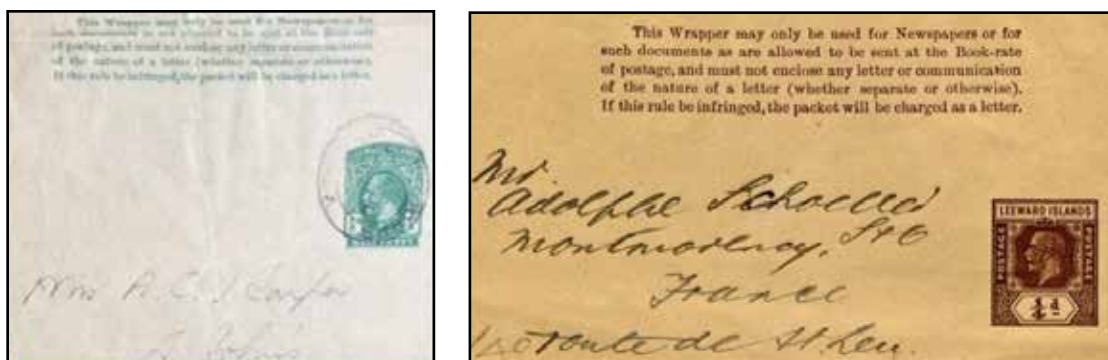 This Wrapper may only be used for Newspapers or for
such documents as are allowed to be sent at the Book-rate
of postage, and must not enclose any letter or communication
of the nature of a letter (whether separate or otherwise).
If this rule be infringed, the packet will be charged as a letter.
Mrs A. C.
This Wrapper may only be used for Newspapers or for
such documents as are allowed to be sent at the Book-rate
of postage, and must not enclose any letter or communication
of the nature of a letter (whether separate or otherwise).
If this rule be infringed, the packet will be charged as a letter.
Mr
Adolphe
Montmorency, S&O
France
route de St. Leu.
LEEWARD ISLANDS
POSTAGE
POSTAGE
d